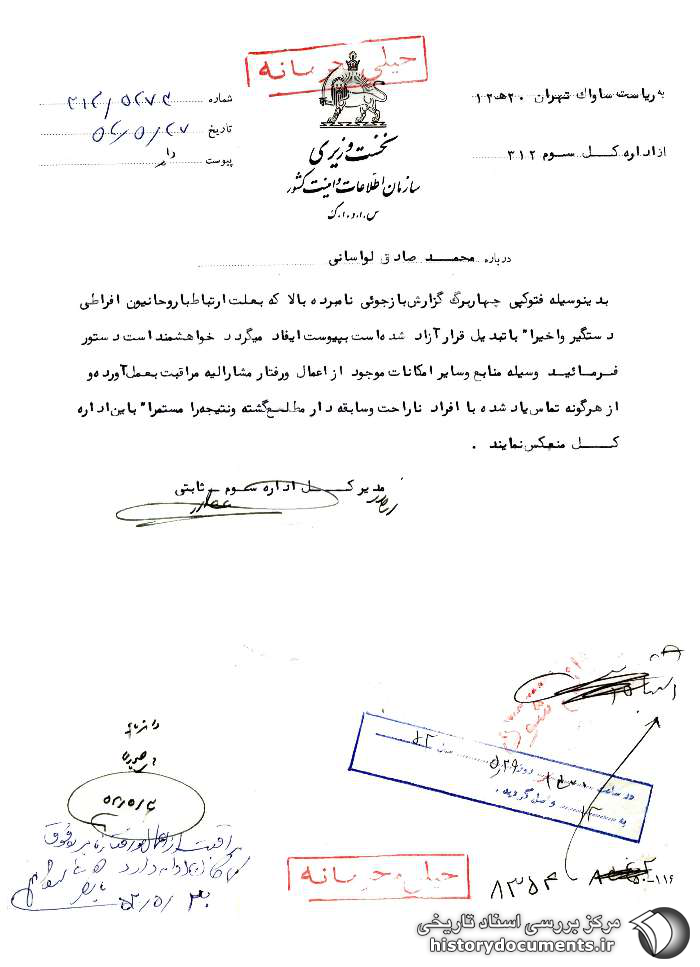 خیلی محرمانه
به ریاست ساواك تهران ۲۰ه۱۲
از اداره کل سوم ۳۱۲
شماره
تاریخ
پیوست دارد
نخست وزیری
سازمان اطلاعات و امنیت کشور
س.ا.و.ا.ک
درباره محمد صادق لواسانی
بدینوسیله فتوکپی چهاربرگ گزارش بازجوئی نامبرده بالا که بعلت ارتباط با روحانیون افراطی
دستگیر واخیرا" با تبدیل قرار آزاد شده است بپیوست ایفاد میگردد خواهشمند است دستور
فرمائید وسیله منابع وسایر امکانات موجود از اعمال ورفتار مشارالیه مراقبت بعمل آورده و
از هرگونه تماس یاد شده با افراد ناراحت وسابقه دار مطلع گشته ونتیجه را مستمرا" باین اداره
کل منعکس نمایند .
مدیر کل اداره سوم - ثابتی
در ساعت روز ۵/۲۹
به وصل گردید .
۵۲/۵/
۵۲/۵/۳۰
خیلی محرمانه
۸۳۵۴
۱۱۶
مرکز بررسی اسناد تاریخی
historydocuments.ir